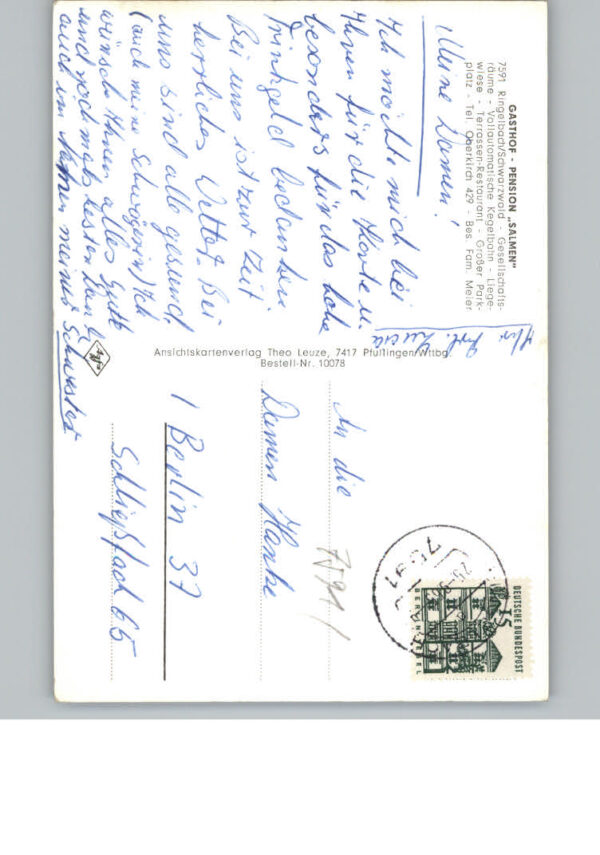 GASTHOF - PENSION „SALMEN"
7591 Ringelbach/Schwarzwald - Gesellschafts-
räume - Vollautomatische Kegelbahn - Liege-
wiese - Terrassen-Restaurant - Großer Park-
platz - Tel. Oberkirch 429 - Bes. Fam. Meier
Meine Damen!
Ich möchte mich bei
Ihnen für die Karte u.
besonders für das hohe
Trinkgeld bedanken
Bei uns ist zur Zeit
herrliches Wetter. Bei
uns sind alle gesund
(auch meine Schwägerin) Ich
wünsche Ihnen alles Gute
und nochmals besten Dank
auch im Namen meiner Schwester
Ihr Frl. Luzia
Ansichtskartenverlag Theo Leuze, 7417 Pfullingen/Wttbg.
Bestell-Nr. 10078
Agfa
An die
Damen Hanke
1 Berlin 37
Schließfach 65
7591
7591
DEUTSCHE BUNDESPOST
15